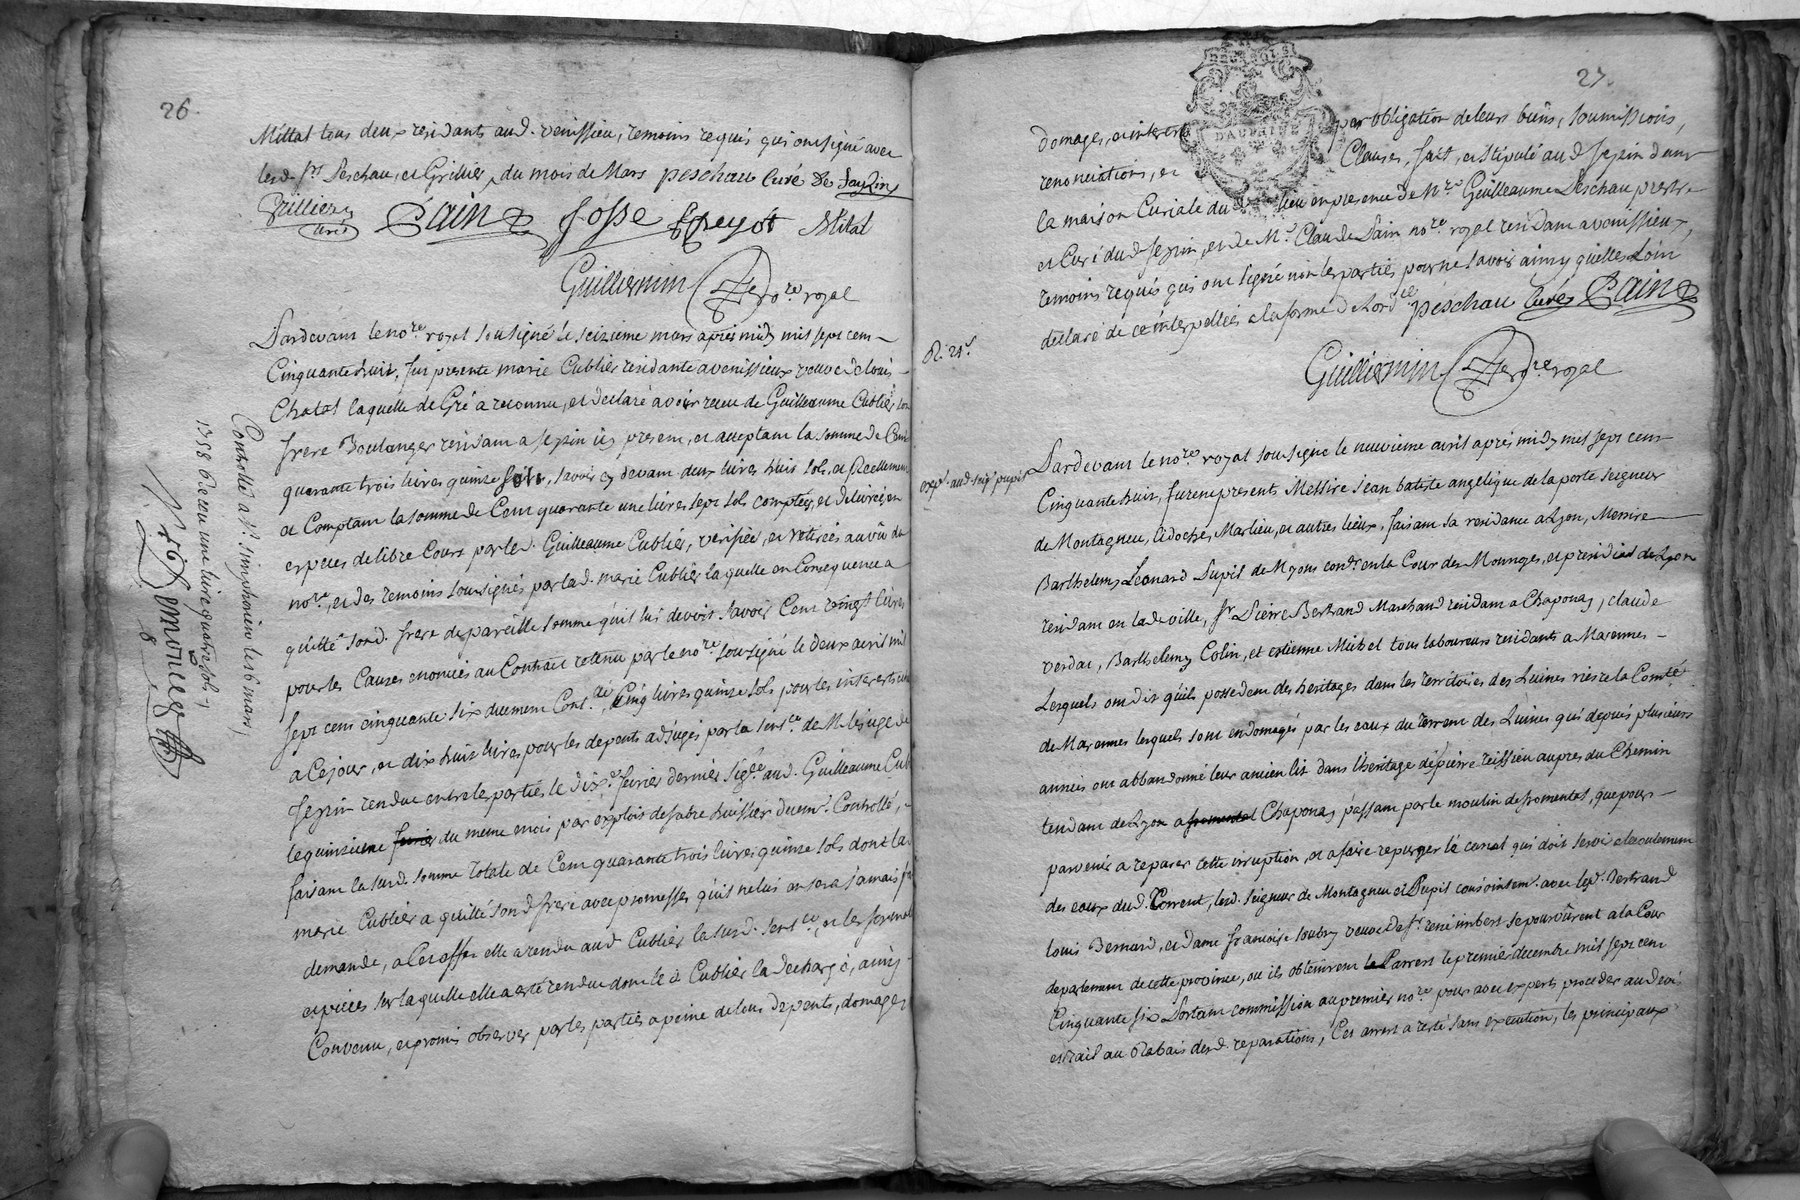 26.
Mittal tous deux residants aud. venissieu, temoins requis qui ont signé avec
lesd. srs Peschau, et Grillier, du mois de Mars peschau curé de Sayzin
Grillier Pain Josse Freyot Mital
Guilliermin no.re royal
Pardevant le no.re royal soussigné le seizieme mars apres midy mil sept cent
Cinquante huit, fut presente marie Cublier residante a venissieux veuve de louis
Chatal laquelle de Gré a reconnu, et declaré avoir receu de Guilleaume Cublier son
frere Boulanger residant a sezin icy present, et acceptant la somme de Cent
quarante trois livres quinze sols, savoir cy devant deux livres huit sols, et Reellement
et Comptant la somme de Cent quarante une livres sept sols comptée, et delivrée en
especes de libre Cours par led. Guilleaume Cublier, verifiée, et retirée au vû du
no.re, et des temoins soussignés par lad. marie Cublier laquelle en Consequence a
quitté sond. frere de pareille somme qu'il lui devoit savoir Cent vingt livres
pour les Causes enoncées au Contract retenu par le no.re soussigné le deux avril mil
sept cent cinquante six duement Cont.lé, Cinq livres quinze sols pour les interets
a Ce jour, et dix huit livres pour les depents adjugés par la sent.ce de M. le juge de
sezin rendue entre les parties le dix.e fevrier dernier sig.ée aud. Guilleaume Cub
le quinzieme fevrier du meme mois par exploit de fabre huissier duem.t Controllé,
faisant la susd. somme totale de Cent quarante trois livres quinze sols dont la
marie Cublier a quitté sond. frere avec promesse qu'il ne lui en sera jamais f
demande, a Cet effet elle a rendu aud. Cublier la susd. sent.ce, et les
et pieces sur laquelle elle a eté rendue dont led. Cublier la decharge, ainsy
Convenu, et promis observer par les parties a peine de tous depents, domages
Controllé a st. simphorien le 16 mars
1758 Receu une livre quatre sols
27.
domages, et interets par obligation de leurs biens, soumissions,
renonciations, et Clauses, fait, et stipulé aud. sezin dans
la maison Curiale du lieu en presence de M.re Guilleaume Peschau pretre
et Curé dud. sezin, et de M.e Claude Pain no.re royal residant a venissieux,
temoins requis qui ont signé non les parties pour ne savoir ainsy qu'elles l'ont
declaré de ce interpellées a la forme de l'ord.ce peschau curé Pain
R. 24s.
Guilliermin no.re royal
Pardevant le no.re royal soussigné le neuvieme avril apres midy mil sept cent
exp.é aud. sr pupil
Cinquante huit, furent presents Messire Jean Batiste angelique de la porte seigneur
de Montagneu, Cidoche, Marlieu, et autres lieux, faisant sa residance a Lyon, Messire
Barthelemy Leonard Pupil de Myons con.er en la Cour des Monnoyes, et presidial de Lyon
residant en lad. ville, sr Pierre Bertrand Marchand residant a Chaponay, claude
verdat, Barthelemy Colin, et etienne Michel tous laboureurs residants a Marennes
Lesquels ont dit qu'ils possedent des heritages dans les territoires des Luines rieres la Comté
de Marennes lesquels sont endomagés par les eaux du torrent des Luines qui depuis plusieurs
années ont abbandonné leur ancien lit dans l'heritage de pierre reissieu aupres du Chemin
tendant de Lyon a fromental Chaponay passant par le moulin de fromental, que pour
parvenir a reparer cette irruption, et a faire repurger le canal qui doit servir a l'ecoulement
des eaux dud. Torrent, lesd. seigneur de Montagneu et Pupil conjointem.t avec led. Bertrand
louis Bernard, et dame francoise soubry veuve de sr rené imbert se pourvûrent a la Cour
de parlement de cette province, ou ils obtinrent le Parrest le premier decembre mil sept cent
Cinquante six Portant commission au premier no.re pour avec experts proceder au devis
et bail au Rabais desd. reparations, Cet arrest a resté sans execution, les principaux